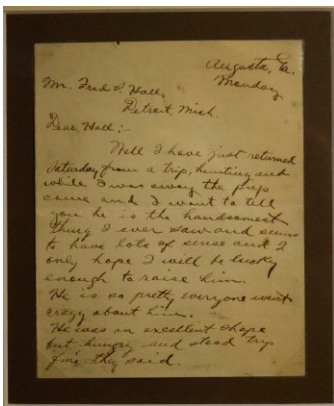 Augusta, Ga.
Monday
Mr. Fred L. Hall,
Detroit Mich.
Dear Hall:-
Well I have just returned
Saturday from a trip, hunting and
while I was away the pup
came and I want to tell
you he is the handsomest
thing I ever saw and seems
to have lots of sense and I
only hope I will be lucky
enough to raise him.
He is so pretty everyone went
crazy about him.
He was in excellent shape
but hungry and stood trip
fine they said.